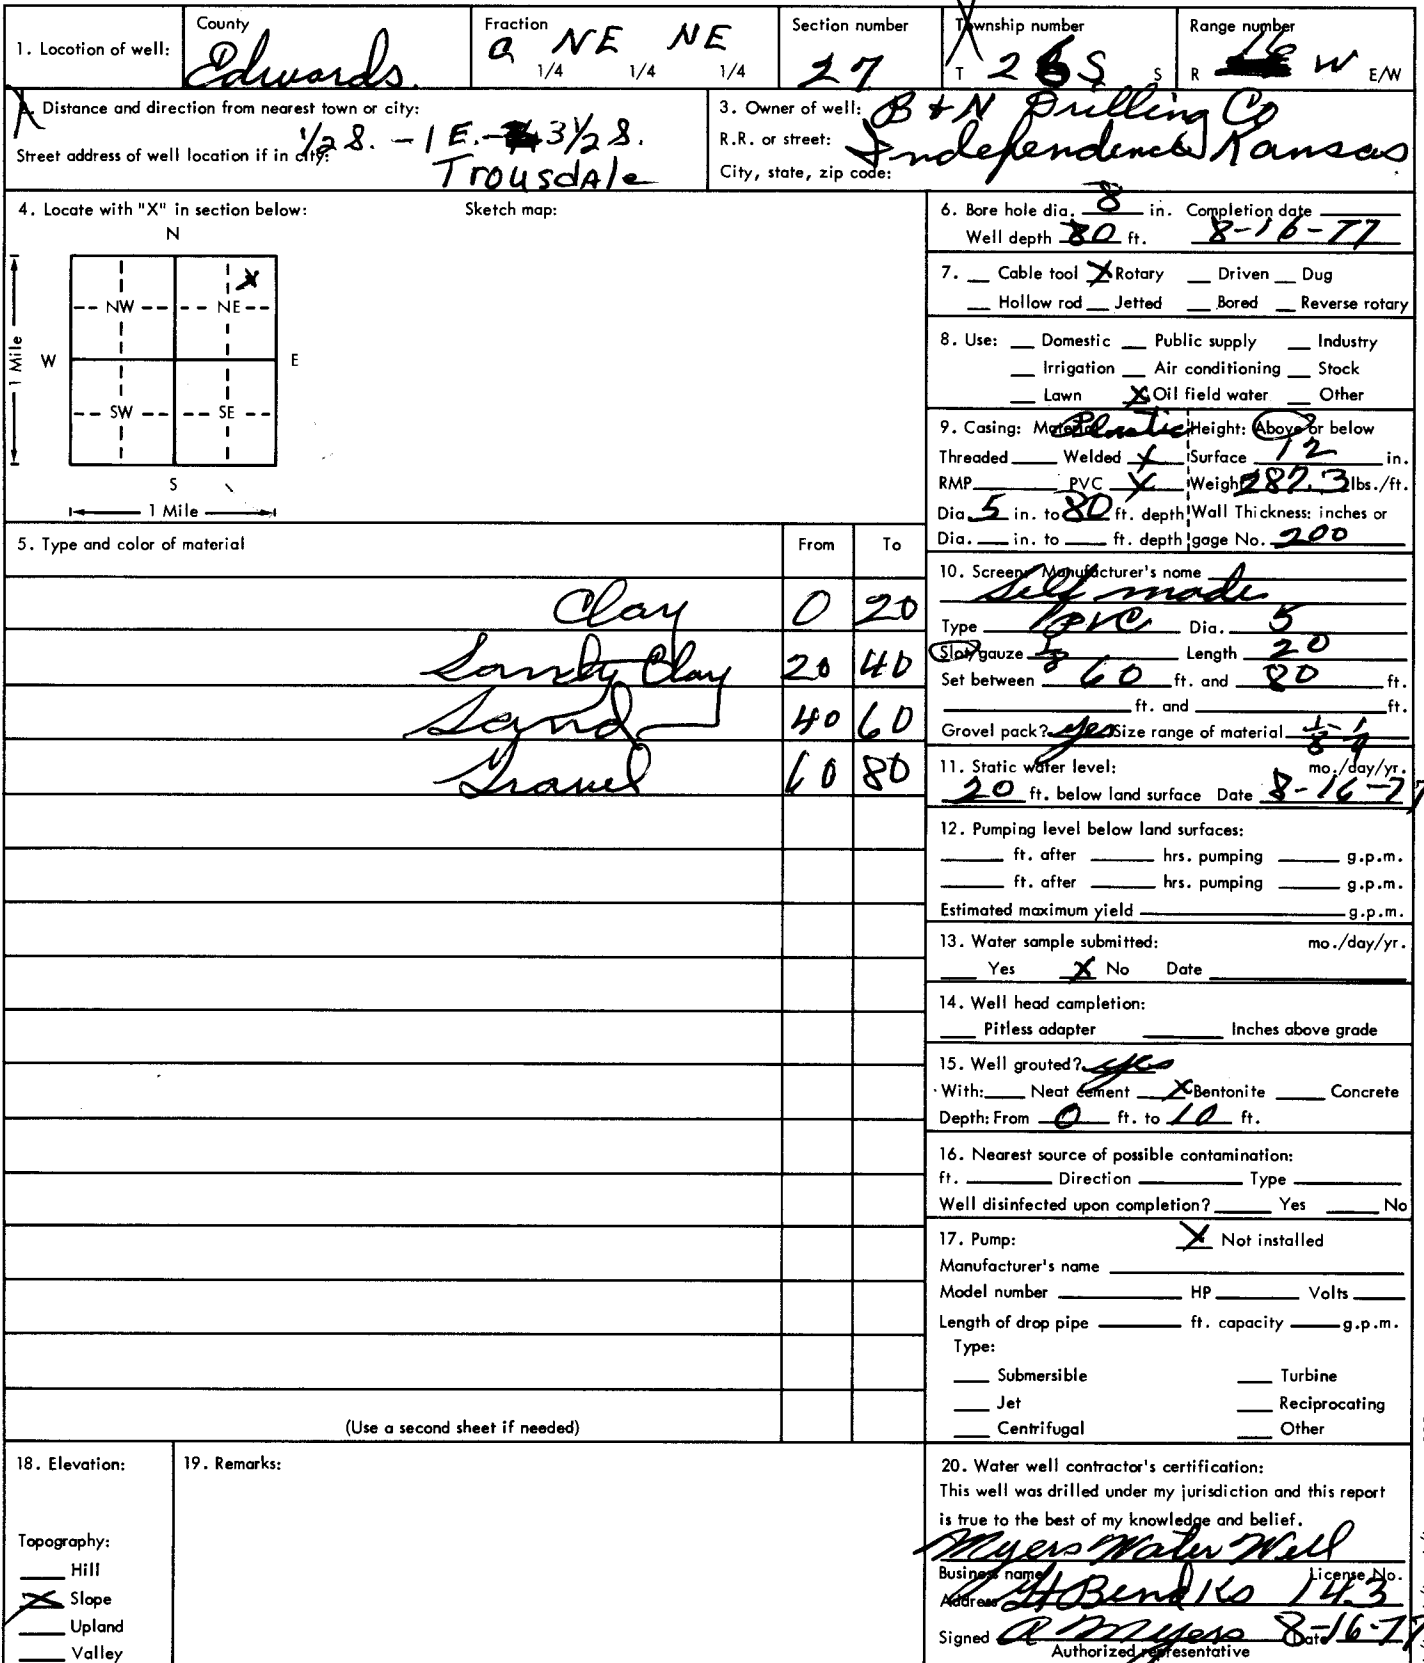 1. Location of well:
County
Edwards
Fraction
C NE NE
1/4 1/4 1/4
Section number
27
Township number
T 26 S S
Range number
R W E/W
2. Distance and direction from nearest town or city:
1/2 S. - 1 E. - 3 1/2 S.
Street address of well location if in city:
Trousdale
3. Owner of well: B + N Drilling Co
R.R. or street: Independence, Kansas
City, state, zip code:
4. Locate with "X" in section below:
Sketch map:
N
X
NW NE
W E
1 Mile
SW SE
S
1 Mile
5. Type and color of material From To
Clay 0 20
Sandy Clay 20 40
Sand 40 60
Gravel 60 80
(Use a second sheet if needed)
6. Bore hole dia. 8 in. Completion date
Well depth 80 ft. 8-16-77
7. Cable tool X Rotary Driven Dug
Hollow rod Jetted Bored Reverse rotary
8. Use: Domestic Public supply Industry
Irrigation Air conditioning Stock
Lawn X Oil field water Other
9. Casing: Material Plastic Height: Above or below
Threaded Welded X Surface 12 in.
RMP PVC X Weight 287.3 lbs./ft.
Dia. 5 in. to 80 ft. depth Wall Thickness: inches or
Dia. in. to ft. depth gage No. 200
10. Screen: Manufacturer's name
Self made
Type PVC Dia. 5
Slot/gauze 1/8 Length 20
Set between 60 ft. and 80 ft.
ft. and ft.
Gravel pack? yes Size range of material 1/8 - 1/4
11. Static water level: mo./day/yr.
20 ft. below land surface Date 8-16-77
12. Pumping level below land surfaces:
ft. after hrs. pumping g.p.m.
ft. after hrs. pumping g.p.m.
Estimated maximum yield g.p.m.
13. Water sample submitted: mo./day/yr.
Yes X No Date
14. Well head completion:
Pitless adapter Inches above grade
15. Well grouted? yes
With: Neat cement X Bentonite Concrete
Depth: From 0 ft. to 10 ft.
16. Nearest source of possible contamination:
ft. Direction Type
Well disinfected upon completion? Yes No
17. Pump: X Not installed
Manufacturer's name
Model number HP Volts
Length of drop pipe ft. capacity g.p.m.
Type:
Submersible Turbine
Jet Reciprocating
Centrifugal Other
18. Elevation:
Topography:
Hill
X Slope
Upland
Valley
19. Remarks:
20. Water well contractor's certification:
This well was drilled under my jurisdiction and this report
is true to the best of my knowledge and belief.
Myers Water Well
Business name License No.
Address Gt Bend Ks 143
Signed R Myers Date 8-16-77
Authorized representative